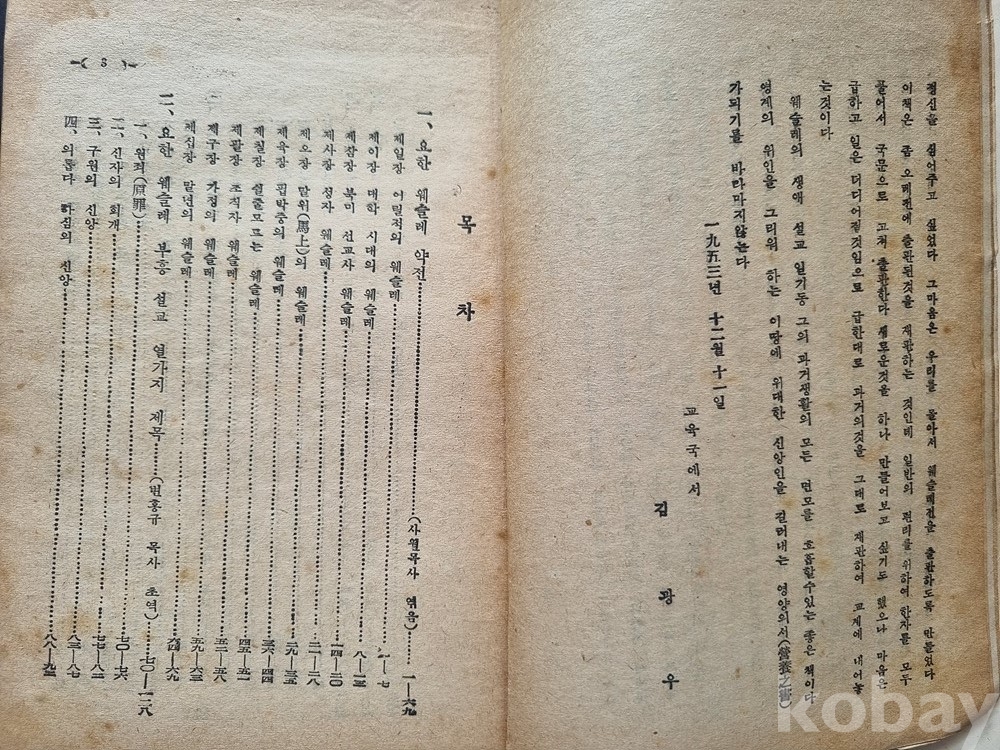 정신을 심어주고 싶었다 그마음은 우리를 돌아서 웨슬레전을 출판하도록 만들었다
이책은 좀 오래전에 출판된것을 재판하는 것인데 일반의 편리를 위하여 한자를 모두
풀어서 국문으로 고쳐 출판한다 새로운것을 하나 만들어보고 싶기도 했으나 마음은
급하고 일은 더디어질것임으로 급한대로 과거의것을 그대로 재판하여 교계에 내어놓
는것이다
웨슬레의 생애 설교 일기등 그의 과거생활의 모든 면모를 흡할수있는 좋은 책이다
영계의 위인을 그리워 하는 이땅에 위대한 신앙인을 길러내는 영양의서(營養之書)
가되기를 바라마지않는다
一九五三년 十二월 十一일
교육국에서
김 광 우
목 차
一、 요한 웨슬레 약전……(사월목사 엮음)……一—六九
제일장 어릴적의 웨슬레……一—七
제이장 대학 시대의 웨슬레……八—一三
제삼장 북미 선교사 웨슬레……一四—二〇
제사장 성자 웨슬레……二一—二八
제오장 말위(馬上)의 웨슬레……二九—三五
제육장 핍박중의 웨슬레……三六—四四
제칠장 쉴줄모르는 웨슬레……四五—五一
제팔장 조직자 웨슬레……五二—五八
제구장 가정의 웨슬레……五九—六三
제십장 말년의 웨슬레……六四—六九
二、 요한 웨슬레 부흥 설교 열가지 제목……(변홍규 목사 초역)……七〇—一二八
一、 원죄(原罪)……七〇—七六
二、 신자의 회개……七七—八二
三、 구원의 신앙……八三—八七
四、 의롭다 하심의 신앙……八八—九三
—( 3 )—
kobay